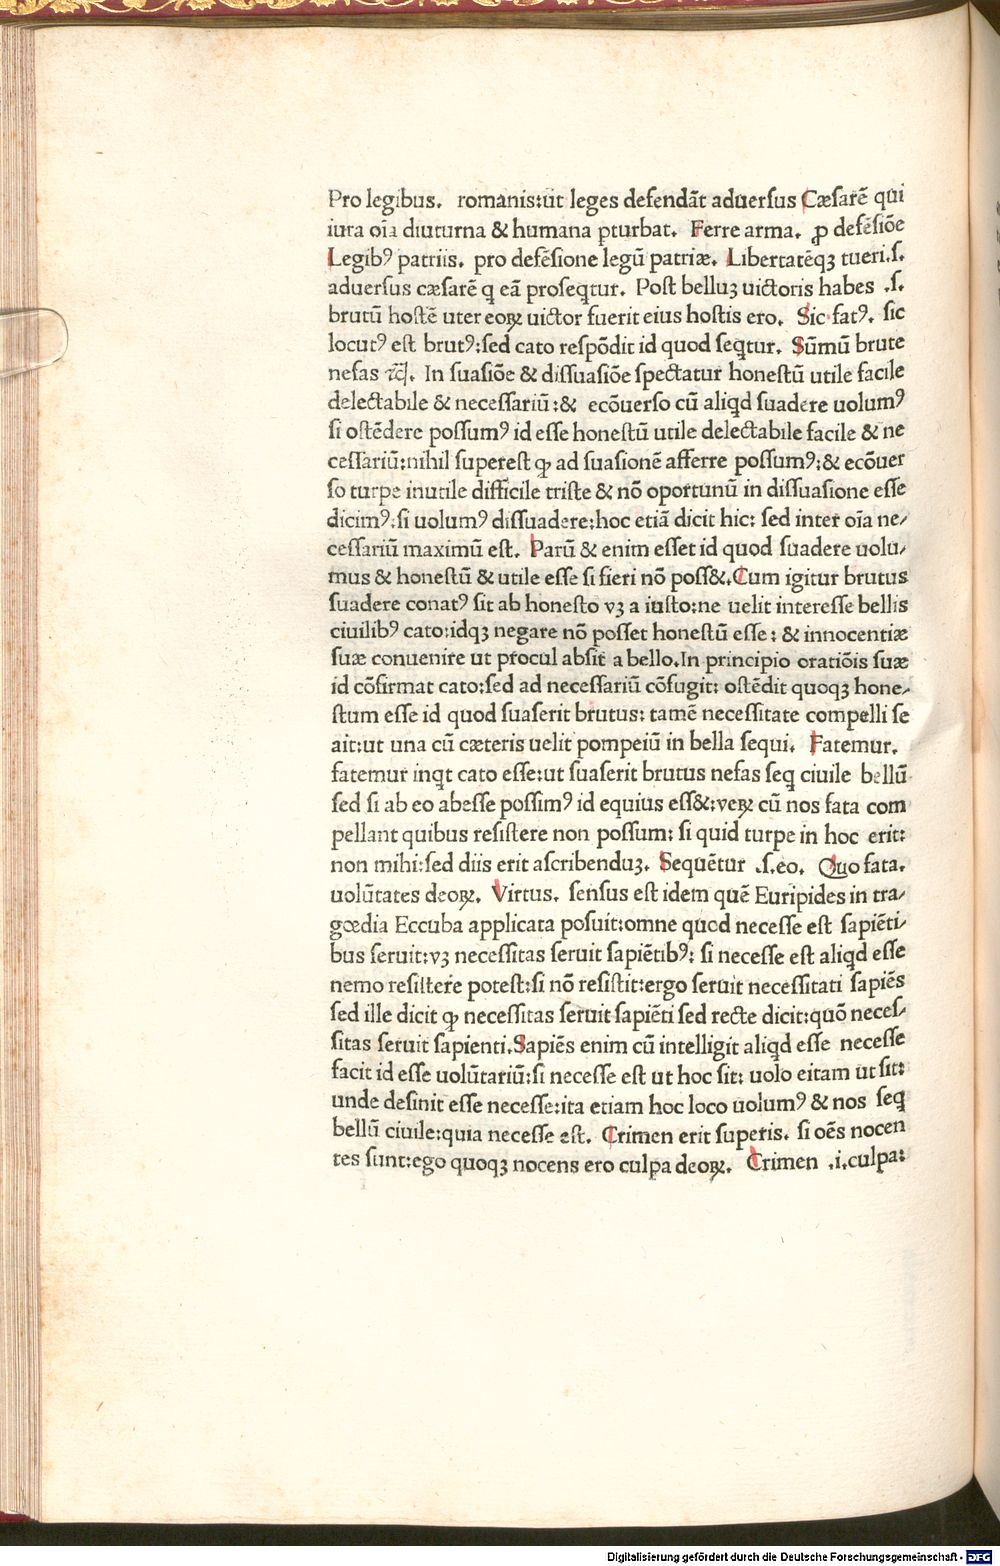 Pro legibus. romanis:ut leges defendāt aduerſus Cæſarē qui
iura oīa diuturna & humana pturbat. Ferre arma. ꝓ defēſiōe
Legibꝰ patriis. pro defēſione legū patriæ. Libertatēqꝫ tueri.ſ.
aduerſus cæſarē q̄ eā proſeqtur. Poſt belluꝫ uictoris habes .ſ.
brutū hoſtē uter eoꝝ uictor fuerit eius hoſtis ero. Sic fatꝰ. ſic
locutꝰ eſt brutꝰ:ſed cato reſpōdit id quod ſeqtur. Sūmū brute
nefas ⁊c̄. In ſuaſiōe & diſſuaſiōe ſpectatur honeſtū utile facile
delectabile & neceſſariū:& ecōuerſo cū aliqd ſuadere uolumꝰ
ſi oſtēdere poſſumꝰ id eſſe honeſtū utile delectabile facile & ne
ceſſariū:nihil ſupereſt ꝙ ad ſuaſionē afferre poſſumꝰ:& ecōuer
ſo turpe inutile difficile triſte & nō oportunū in diſſuaſione eſſe
dicimꝰ.ſi uolumꝰ diſſuadere:hoc etiā dicit hic: ſed inter oīa ne⸗
ceſſariū maximū eſt. Parū & enim eſſet id quod ſuadere uolu⸗
mus & honeſtū & utile eſſe ſi fieri nō poſſ&.Cum igitur brutus
ſuadere conatꝰ ſit ab honeſto vꝫ a iuſto:ne uelit intereſſe bellis
ciuilibꝰ cato:idqꝫ negare nō poſſet honeſtū eſſe: & innocentiæ
ſuæ conuenire ut procul abſit a bello.In principio oratiōis ſuæ
id cōfirmat cato:ſed ad neceſſariū cōfugit: oſtēdit quoqꝫ hone⸗
ſtum eſſe id quod ſuaſerit brutus: tamē neceſſitate compelli ſe
ait:ut una cū cæteris uelit pompeiū in bella ſequi. Fatemur.
fatemur inqt cato eſſe:ut ſuaſerit brutus nefas ſeq ciuile bellū
ſed ſi ab eo abeſſe poſſimꝰ id equius eſſ&:veꝝ cū nos fata com
pellant quibus reſiſtere non poſſum: ſi quid turpe in hoc erit:
non mihi:ſed diis erit aſcribenduꝫ. Sequētur .ſ.eo. Quo fata.
uolūtates deoꝝ. Virtus. ſenſus eſt idem quē Euripides in tra⸗
gœdia Eccuba applicata poſuit:omne quod neceſſe eſt ſapiēti⸗
bus ſeruit:vꝫ neceſſitas ſeruit ſapiētibꝰ: ſi neceſſe eſt aliqd eſſe
nemo reſiſtere poteſt:ſi nō reſiſtit:ergo ſeruit neceſſitati ſapiēs
ſed ille dicit ꝙ neceſſitas ſeruit ſapiēti ſed recte dicit:quō neceſ⸗
ſitas ſeruit ſapienti.Sapiēs enim cū intelligit aliqd eſſe neceſſe
facit id eſſe uolūtariū:ſi neceſſe eſt ut hoc ſit: uolo eitam ut ſit:
unde deſinit eſſe neceſſe:ita etiam hoc loco uolumꝰ & nos ſeq
bellū ciuile:quia neceſſe eſt. Crimen erit ſuperis. ſi oēs nocen
tes ſunt:ego quoqꝫ nocens ero culpa deoꝝ. Crimen .i.culpa:
Digitalisierung gefördert durch die Deutsche Forschungsgemeinschaft - DFG